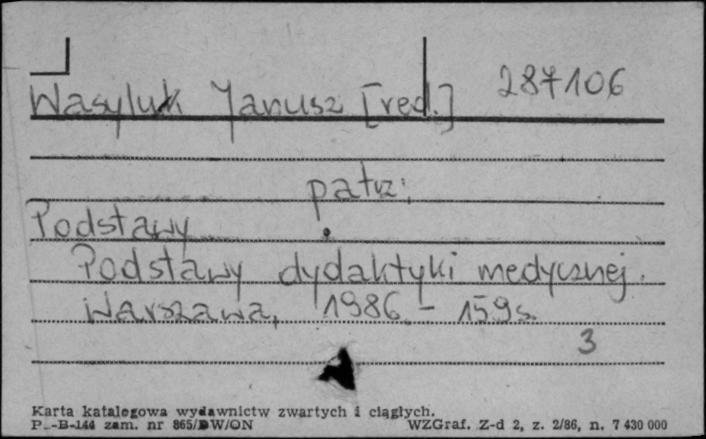 Wasyluk Janusz [red.] 287106
patrz:
Podstawy
Podstawy dydaktyki medycznej.
Warszawa, 1986 - 159s.
3
Karta katalogowa wydawnictw zwartych i ciągłych.
P.-B-144 zam. nr 865/DW/ON WZGraf. Z-d 2, z. 2/86, n. 7 430 000